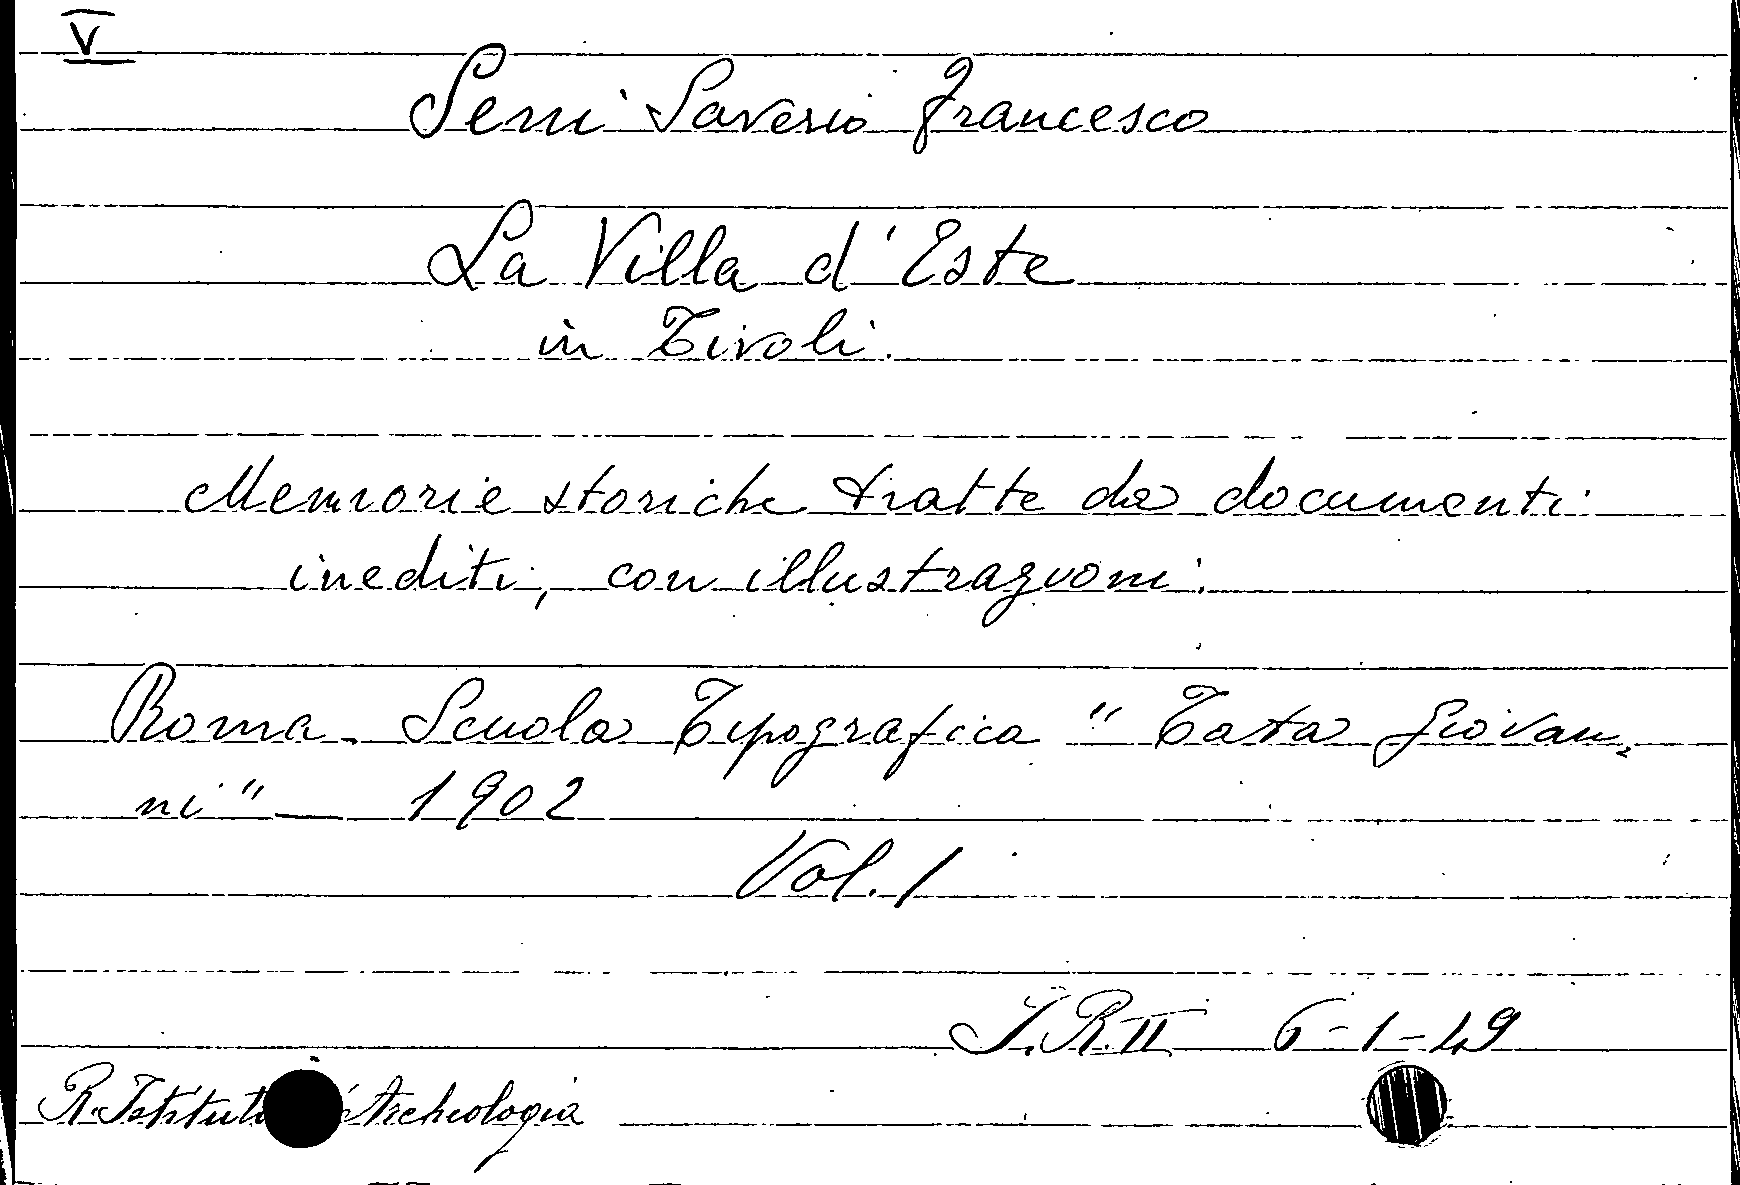 V
Seni Saverio Francesco
La Villa d'Este
in Tivoli.
Memorie storiche tratte da documenti
inediti, con illustrazioni.
Roma - Scuola Tipografica " Tata Giovan=
ni" — 1902
Vol. 1
I.R.II 6-1-49
R. Istituto Archeologia